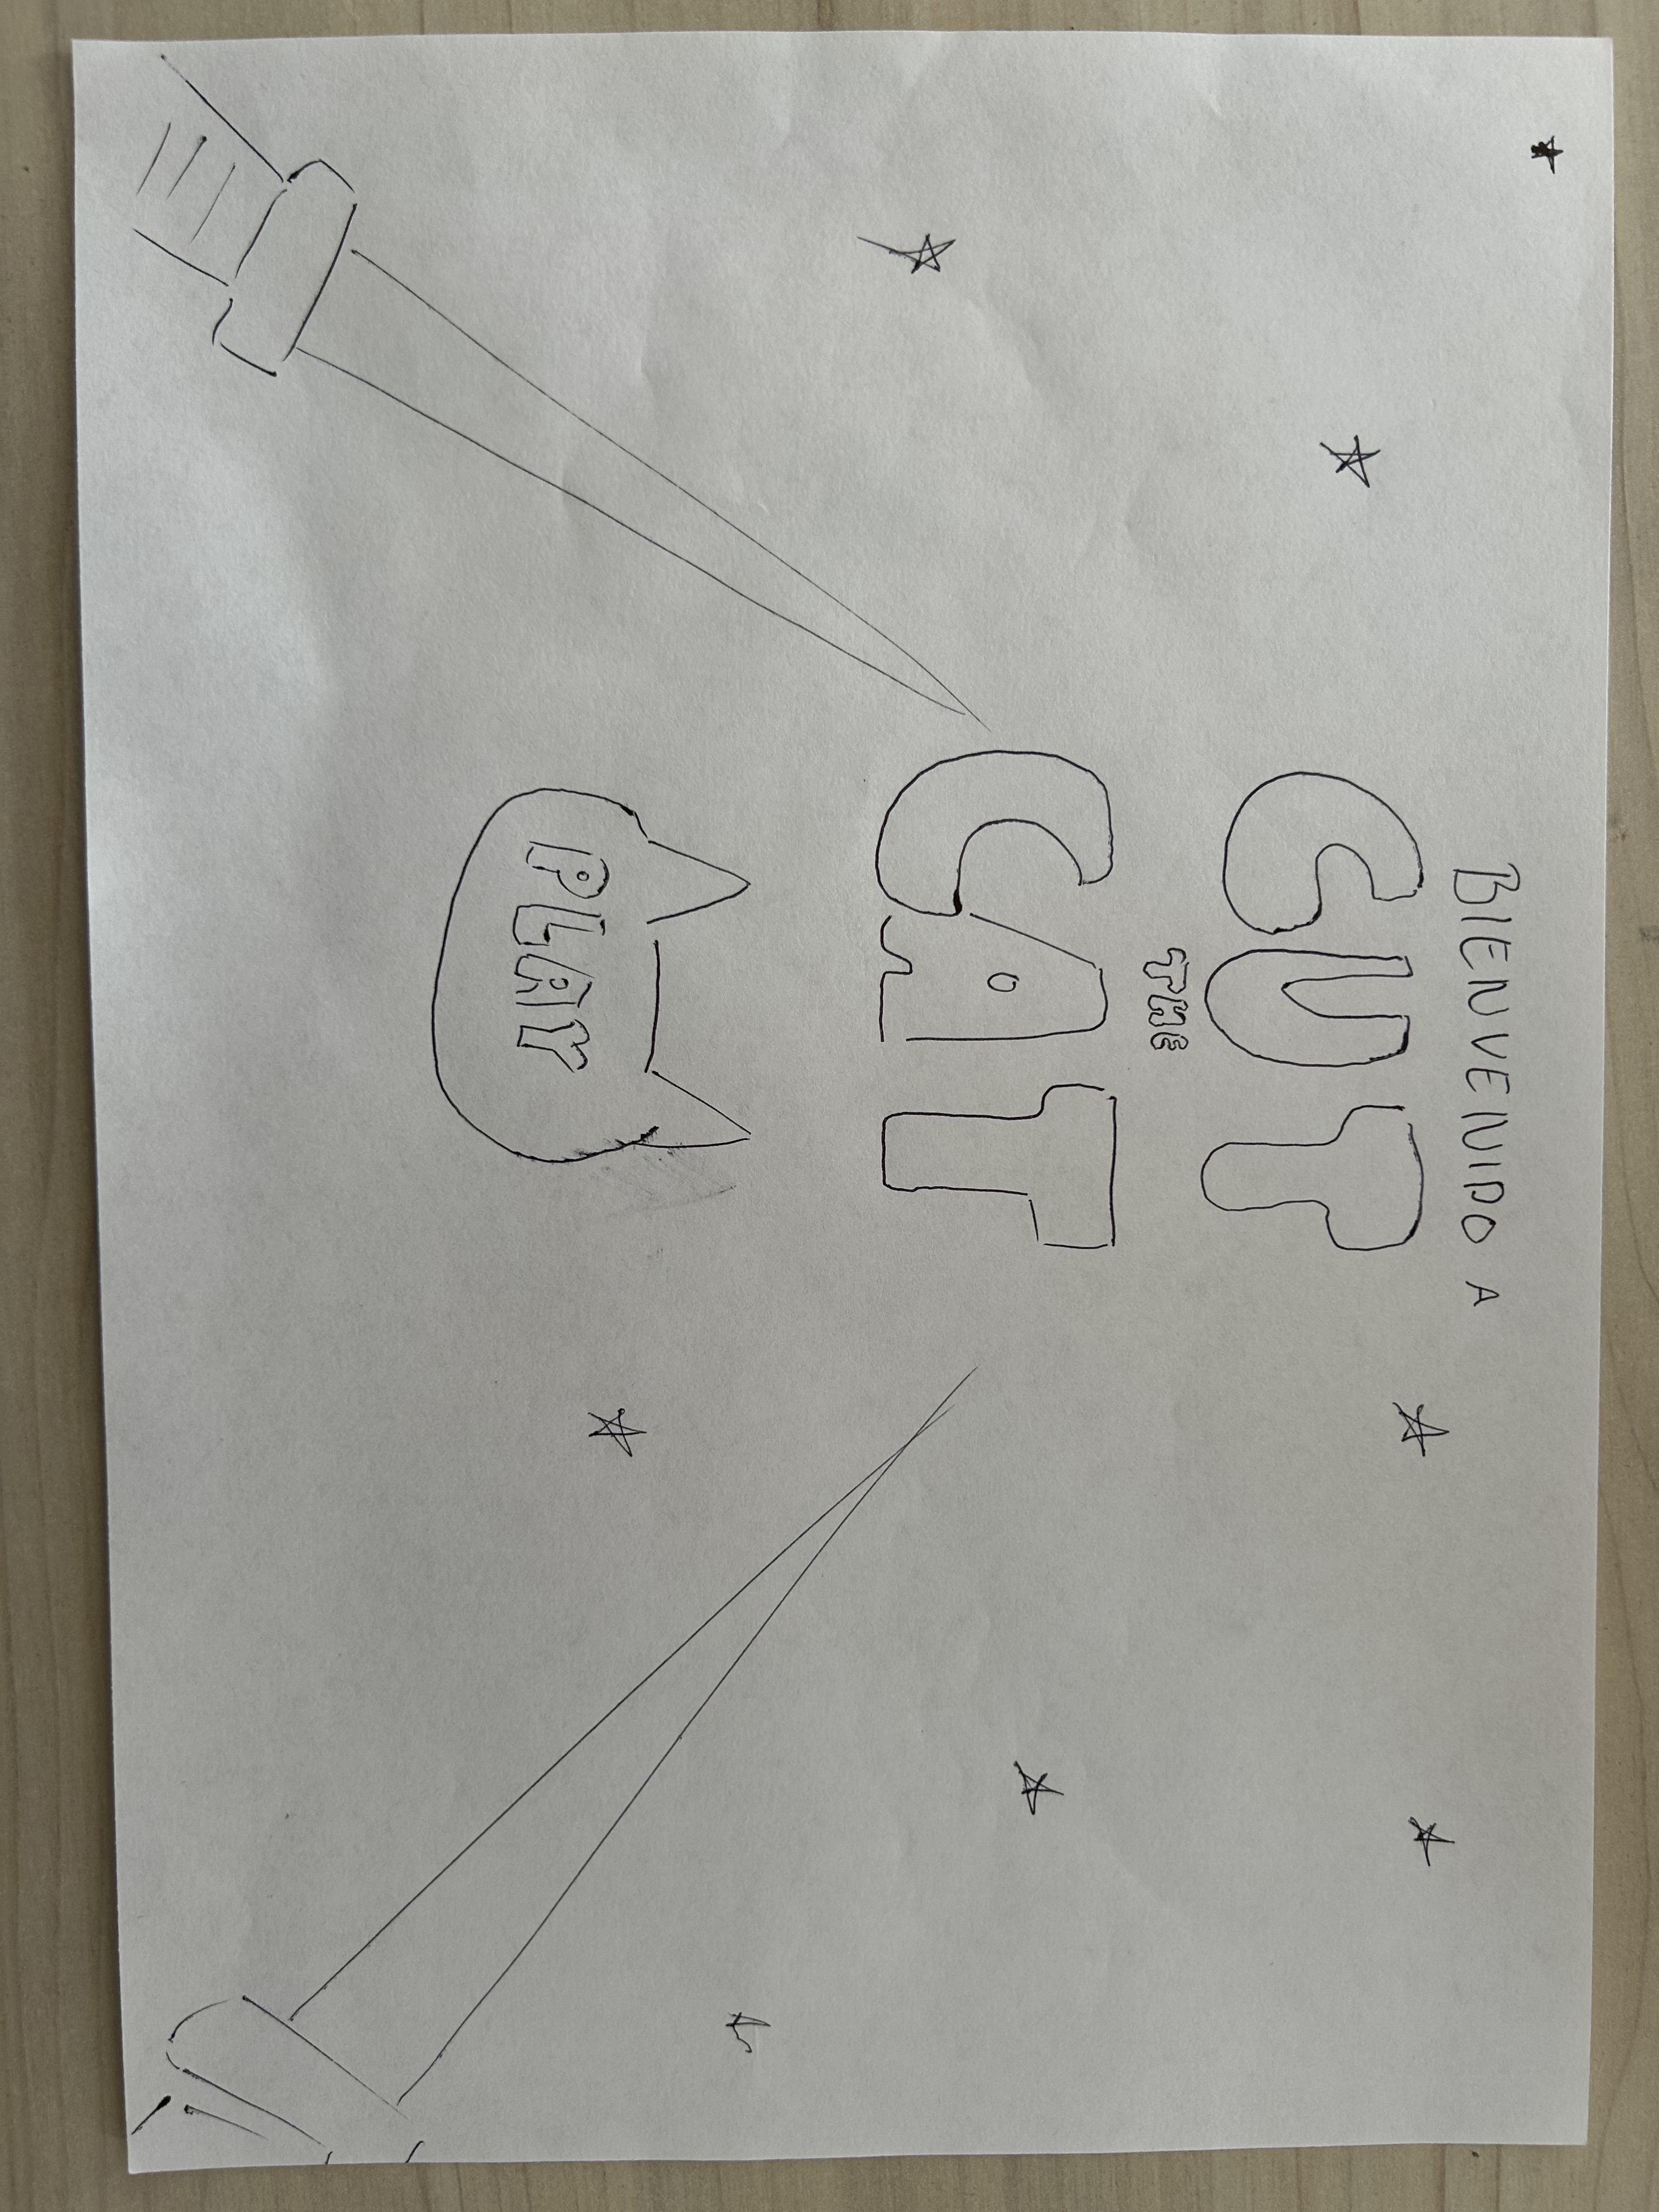 BIENVENIDO A
CUT
THE
CAT
PLAY